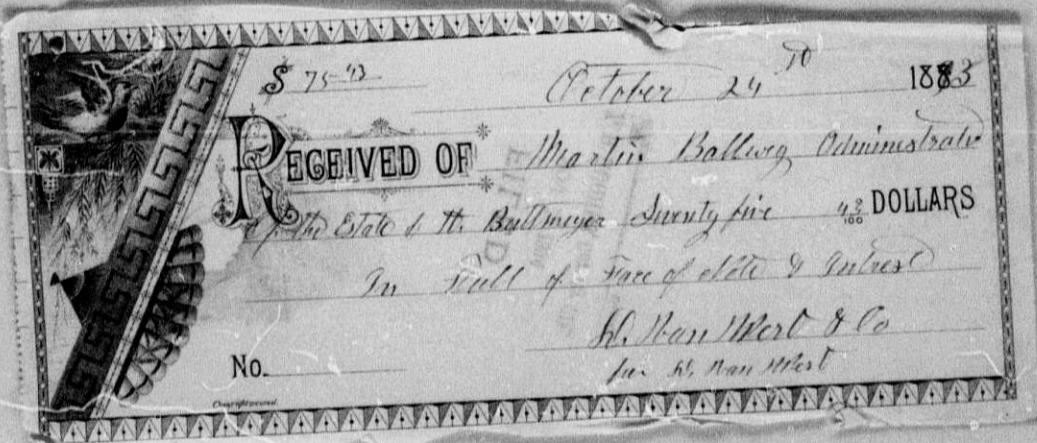 $ 75-43 October 24 1893
RECEIVED OF Martin Ballweg Administrator
of the Estate of H. Buttmeyer Seventy five 43/100 DOLLARS
In Full of Face of Note & Intrest
W. Van Wert & Co
No. per W. Van Wert
Copyright secured.